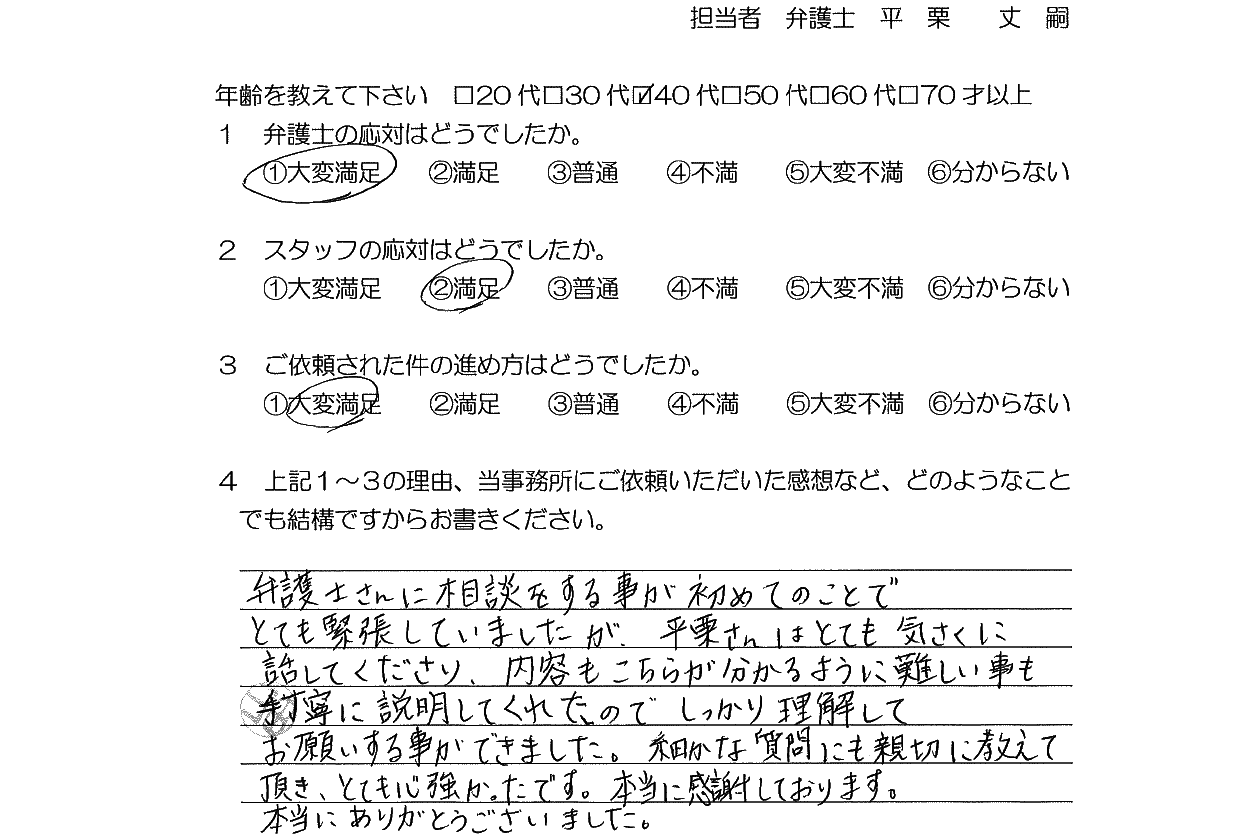 担当者　弁護士　平　栗　　丈　嗣
年齢を教えて下さい　□20代□30代☑40代□50代□60代□70才以上
1　弁護士の応対はどうでしたか。
①大変満足　②満足　③普通　④不満　⑤大変不満　⑥分からない
2　スタッフの応対はどうでしたか。
①大変満足　②満足　③普通　④不満　⑤大変不満　⑥分からない
3　ご依頼された件の進め方はどうでしたか。
①大変満足　②満足　③普通　④不満　⑤大変不満　⑥分からない
4　上記1～3の理由、当事務所にご依頼いただいた感想など、どのようなこと
でも結構ですからお書きください。
弁護士さんに相談をする事が初めてのことで
とても緊張していましたが、平栗さんはとても気さくに
話してくださり、内容もこちらが分かるように難しい事も
丁寧に説明してくれたのでしっかり理解して
お願いする事ができました。細かな質問にも親切に教えて
頂き、とても心強かったです。本当に感謝しております。
本当にありがとうございました。